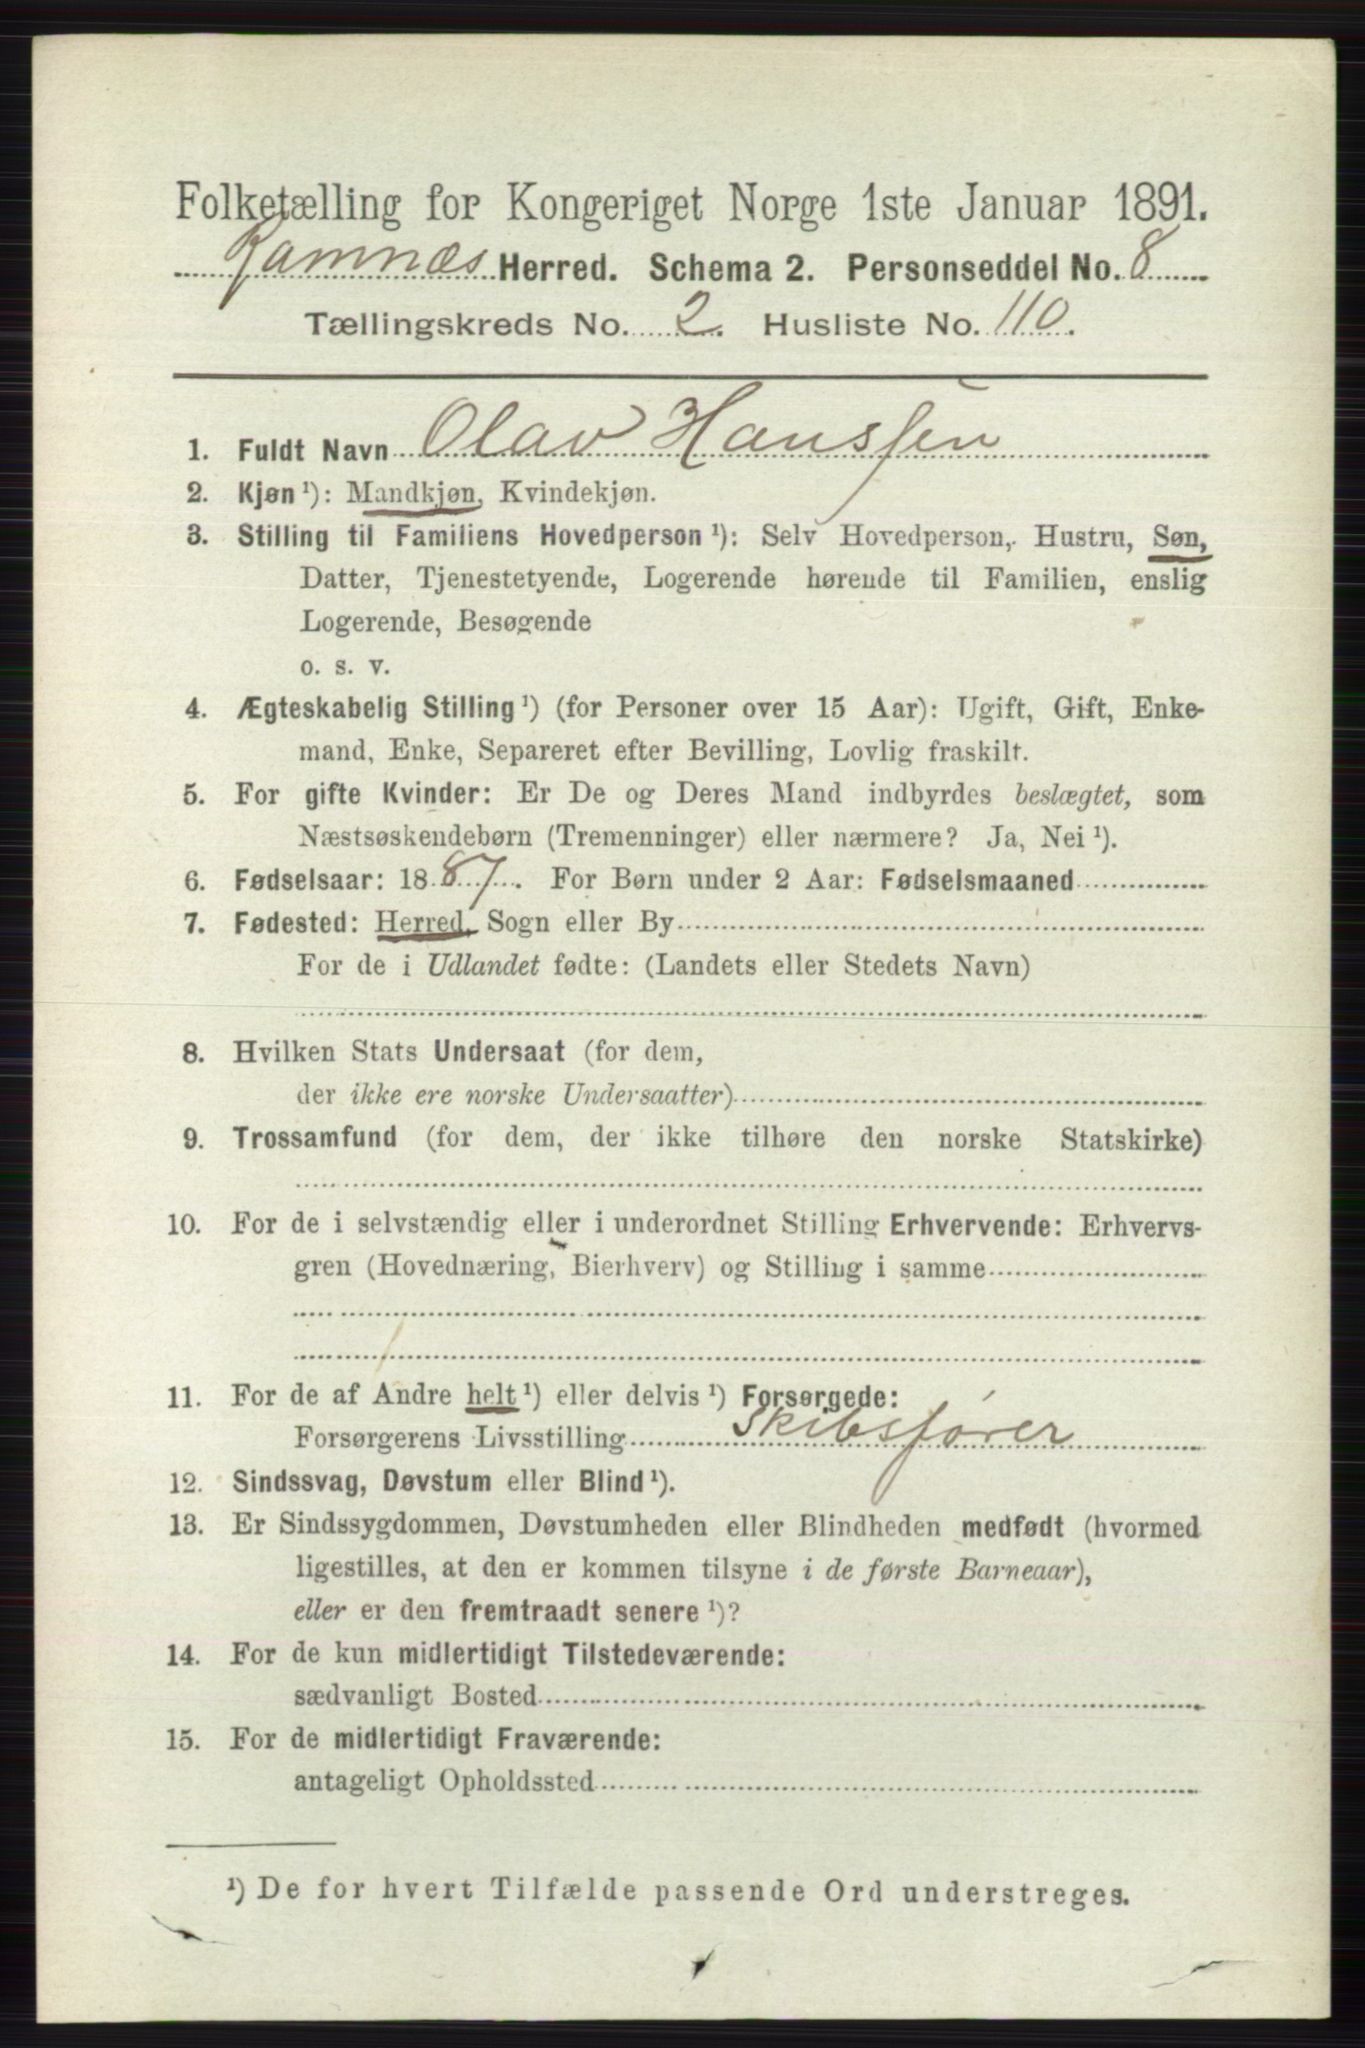 Folketælling for Kongeriget Norge 1ste Januar 1891.
Ramnæs Herred. Schema 2. Personseddel No. 8
Tællingskreds No. 2. Husliste No. 110.
1. Fuldt Navn Olav Hanssen
2. Kjøn ¹): Mandkjøn, Kvindekjøn.
3. Stilling til Familiens Hovedperson ¹): Selv Hovedperson, Hustru, Søn,
Datter, Tjenestetyende, Logerende hørende til Familien, enslig
Logerende, Besøgende
o. s. v.
4. Ægteskabelig Stilling ¹) (for Personer over 15 Aar): Ugift, Gift, Enke-
mand, Enke, Separeret efter Bevilling, Lovlig fraskilt.
5. For gifte Kvinder: Er De og Deres Mand indbyrdes beslægtet, som
Næstsøskendebørn (Tremenninger) eller nærmere? Ja, Nei ¹).
6. Fødselsaar: 1887. For Børn under 2 Aar: Fødselsmaaned
7. Fødested: Herred, Sogn eller By
For de i Udlandet fødte: (Landets eller Stedets Navn)
8. Hvilken Stats Undersaat (for dem,
der ikke ere norske Undersaatter)
9. Trossamfund (for dem, der ikke tilhøre den norske Statskirke)
10. For de i selvstændig eller i underordnet Stilling Erhvervende: Erhvervs-
gren (Hovednæring, Bierhverv) og Stilling i samme
11. For de af Andre helt ¹) eller delvis ¹) Forsørgede:
Forsørgerens Livsstilling Skibsfører
12. Sindssvag, Døvstum eller Blind ¹).
13. Er Sindssygdommen, Døvstumheden eller Blindheden medfødt (hvormed
ligestilles, at den er kommen tilsyne i de første Barneaar),
eller er den fremtraadt senere ¹)?
14. For de kun midlertidigt Tilstedeværende:
sædvanligt Bosted
15. For de midlertidigt Fraværende:
antageligt Opholdssted
¹) De for hvert Tilfælde passende Ord understreges.